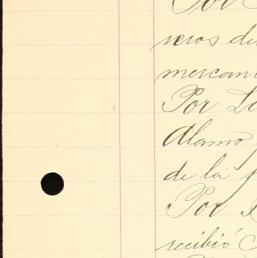 Por
reros de
mercan
Por Lo
Alamo
de la f
Por
recibió C